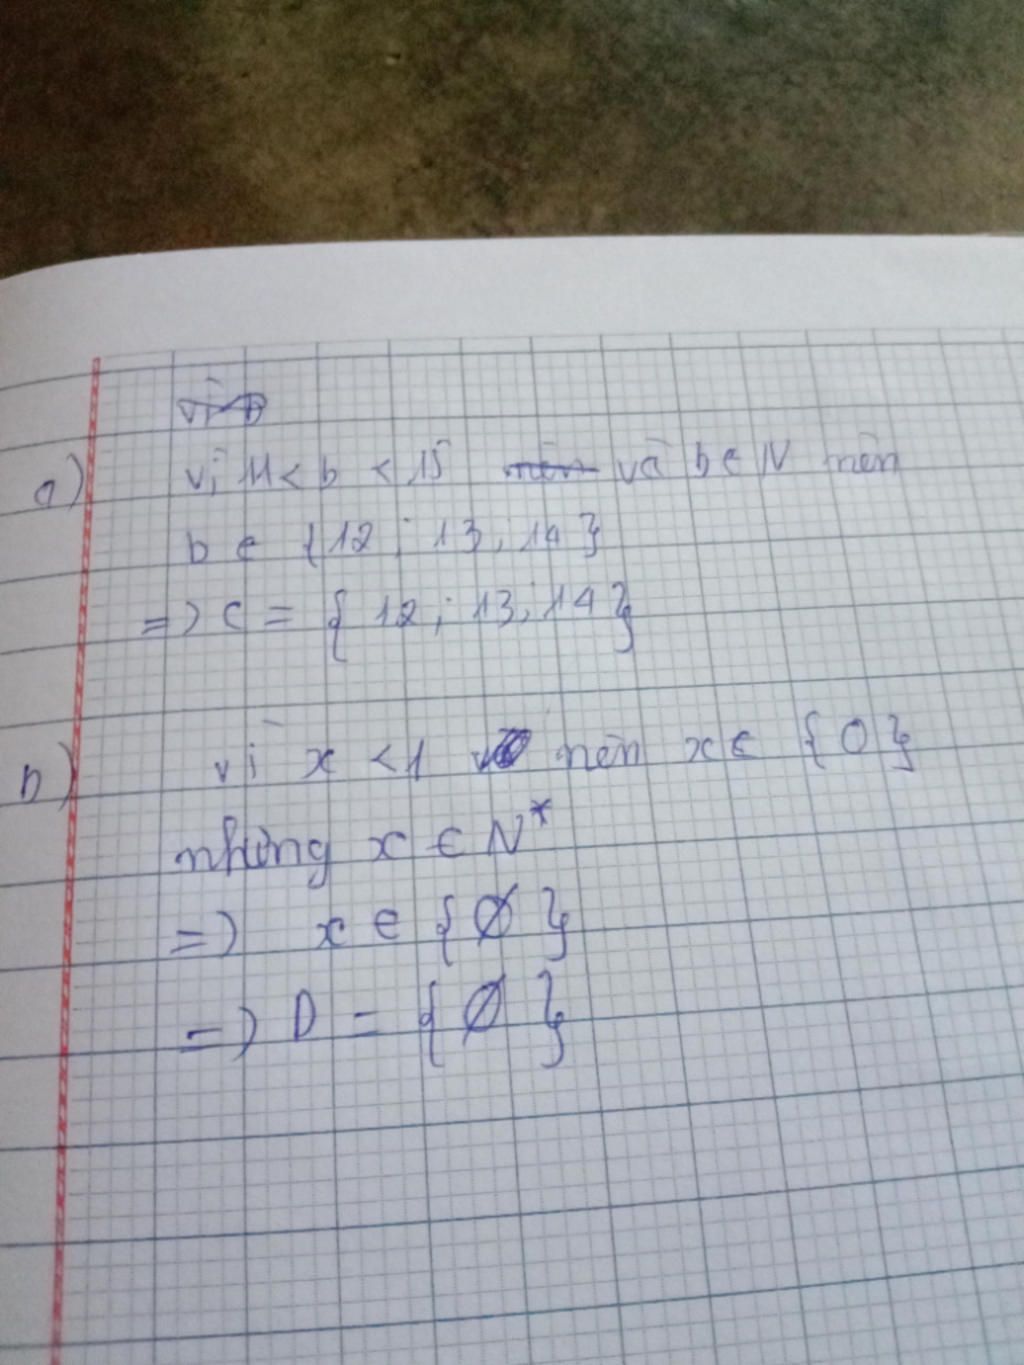 a) vì 11 < b < 15 và b ∈ N nên
b ∈ {12 ; 13 ; 14}
=> C = {12 ; 13 ; 14}
b) vì x < 1 nên x ∈ {0}
nhưng x ∈ N*
=> x ∈ {Ø}
=> D = {Ø}